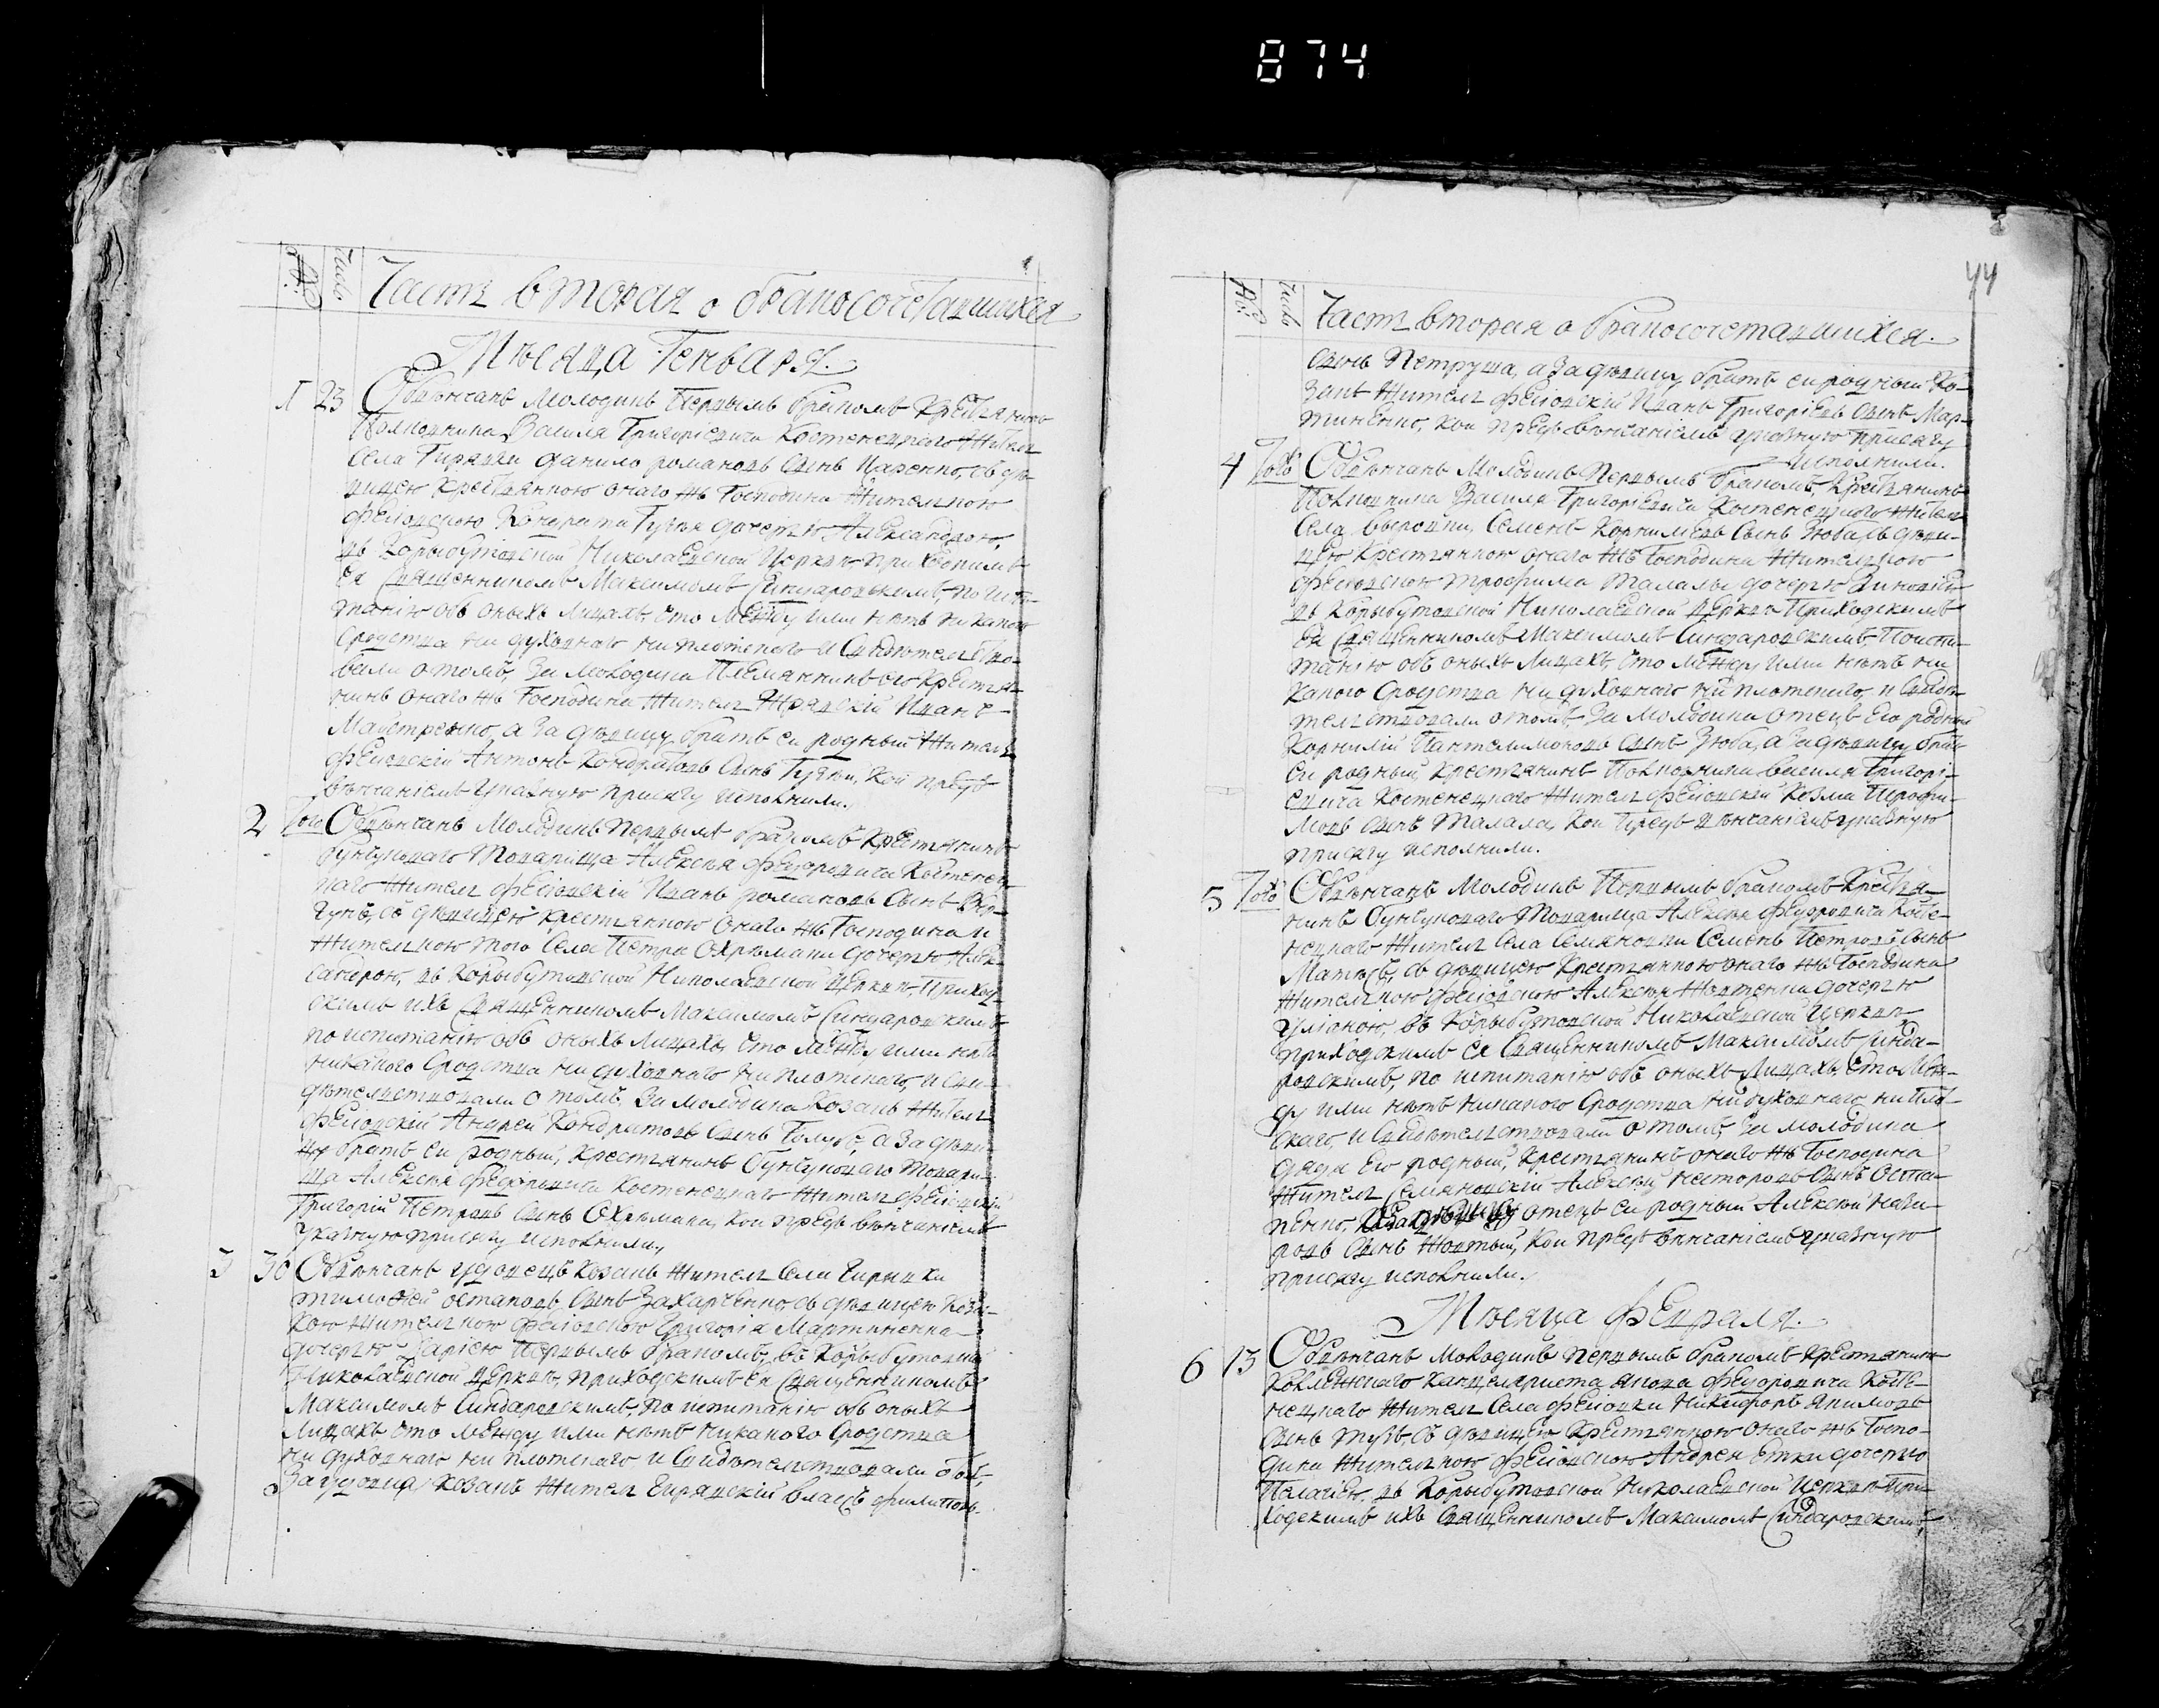 874
44
№: Число
Часть вторая о бракосочетавшихся
Мѣсяца Генваря.
1 23 Обвѣнчанъ молодикъ первымъ бракомъ крестянинъ
Полковника Василя Григоріевича Костенецкаго жителъ
села Гирявки Данило Романовъ сынъ Царенко, съ дѣ-
вицею крестянкою онаго жъ Господина жителкою
Фесювскою Кондрата Гузѣя дочерю Александрою,
въ Корыбутовской Николаевской церквѣ приходскимъ
ея священникомъ Максимомъ Синдаровскимъ, по испи-
танію объ оныхъ лицахъ, что между ими нѣтъ никакого
сродства ни духовнаго ни плотскаго и свидѣтелство-
вали о томъ, за молодика племянникъ его крестя-
нинъ онаго жъ Господина жителъ Иванъ
Майстренко, а за дѣвицу братъ ея родный жителъ
Фесювскій Антонъ Кондратовъ сынъ Гузѣй, кои предъ
вѣнчаніемъ указную присягу исполнили.
2 Того Обвѣнчанъ молодикъ первымъ бракомъ крестянинъ
бунчуковаго товарища Алексѣя Федоровича Костенец-
каго жителъ Фесювскій Иванъ Романовъ сынъ
съ дѣвицею крестянкою онаго жъ Господина и
жителкою того села Петра Охрѣмапи дочерю Алек-
сандрою, въ Корыбутовской Николаевской церквѣ, приход-
скимъ ихъ священникомъ Максимомъ Синдаровскимъ
по испитанію объ оныхъ лицахъ, что между ими нѣтъ
никакого сродства ни духовнаго ни плотскаго, и сви-
дѣтелствовали о томъ, за молодика козакъ жителъ
Фесювскій Андрей Кондратовъ сынъ Голубъ, а за дѣви-
цу братъ ея родный, крестянинъ бунчуковаго товари-
ща Алексѣя Федоровича Костенецкаго жителъ Фесювскій
Григорій Петровъ сынъ кои предъ вѣнчаніемъ
указную присягу исполнили.
3 30 Обвѣнчанъ удовецъ козакъ жителъ села Гирявки
Тимофей Остаповъ сынъ Захарченко съ дѣвицею козач-
кою жителкою Фесювскою Григорія Мартиненка
дочерю Даріею первымъ бракомъ, въ Корыбутовской
Николаевской церквѣ, приходскимъ ея священникомъ
Максимомъ Синдаровскимъ, по испитанію объ оныхъ
лицахъ что между ими нѣтъ никакого сродства
ни духовнаго ни плотскаго и свидѣтелствовали
за удовца козакъ жителъ Гирявскій Власъ Филиповъ
№: Число
Часть вторая о бракосочетавшихся.
сынъ Петруша, а за дѣвицу братъ ея родный ко-
закъ жителъ Фесювскій Иванъ Григоріевъ сынъ Мар-
тиненко, кои предъ вѣнчаніемъ указную присягу
исполнили.
4 Того Обвѣнчанъ молодикъ первымъ бракомъ, крестянинъ
Полковника Василя Григоріевича Костенецкого жителъ
села Семенъ Корниліевъ сынъ Зюба, съ дѣви-
цею крестянкою онаго жъ Господина жителкою
Фесювскою Трофима Талалы дочерю
въ Корыбутовской Николаевской церквѣ приходскимъ
ея священникомъ Максимомъ Синдаровскимъ, по испи-
танію объ оныхъ лицахъ, что между ими нѣтъ ни
какого сродства ни духовнаго ни плотскаго, и свидѣ-
телствовали о томъ, за молодика отецъ его родный
Корнилій Пантелимоновъ сынъ Зюба, а за дѣвицу братъ
ея родный, крестянинъ Полковника Василя Григорі-
евича Костенецкаго жителъ Фесювскій Козма Трофи-
мовъ сынъ Талала, кои предъ вѣнчаніемъ указную
присягу исполнили.
5 Того Обвѣнчанъ молодикъ первымъ бракомъ крестя-
нинъ бунчуковаго товарища Алексѣя Федоровича Косте-
нецкаго жителъ села Семяновки Семенъ Петровъ сынъ
съ дѣвицею крестянкою онаго жъ Господина
жителкою Фесювскою Алексѣя Жовтенка дочерю
Уліаною, въ Корыбутовской Николаевской церквѣ
приходскимъ ея священникомъ Максимомъ Синда-
ровскимъ, по испитанію объ оныхъ лицахъ, что меж-
ду ими нѣтъ никакого сродства ни духовнаго ни плот-
скаго, и свидѣтелствовали о томъ, за молодика
дядя его родный, крестянинъ онаго жъ Господина
жителъ Семяновскій Алексѣй Несторовъ сынъ Оста-
пенко, а за дѣвицу отецъ ея родный Алексѣй Наза-
ровъ сынъ Жовтый, кои предъ вѣнчаніемъ указную
присягу исполнили.
Мѣсяца Февраля.
6 13 Обвѣнчанъ молодикъ первымъ бракомъ крестянинъ
колежскаго канцеляриста Якова Федоровича Косте-
нецкаго жителъ села Фесювки Никифоръ Якимовъ
сынъ Тузъ, съ дѣвицею крестянкою онаго жъ Госпо-
дина жителкою Фесювскою Андрея дочерю
Пелагіею, въ Корыбутовской Николаевской церквѣ при-
ходскимъ ихъ священникомъ Максимомъ Синдаровскимъ,